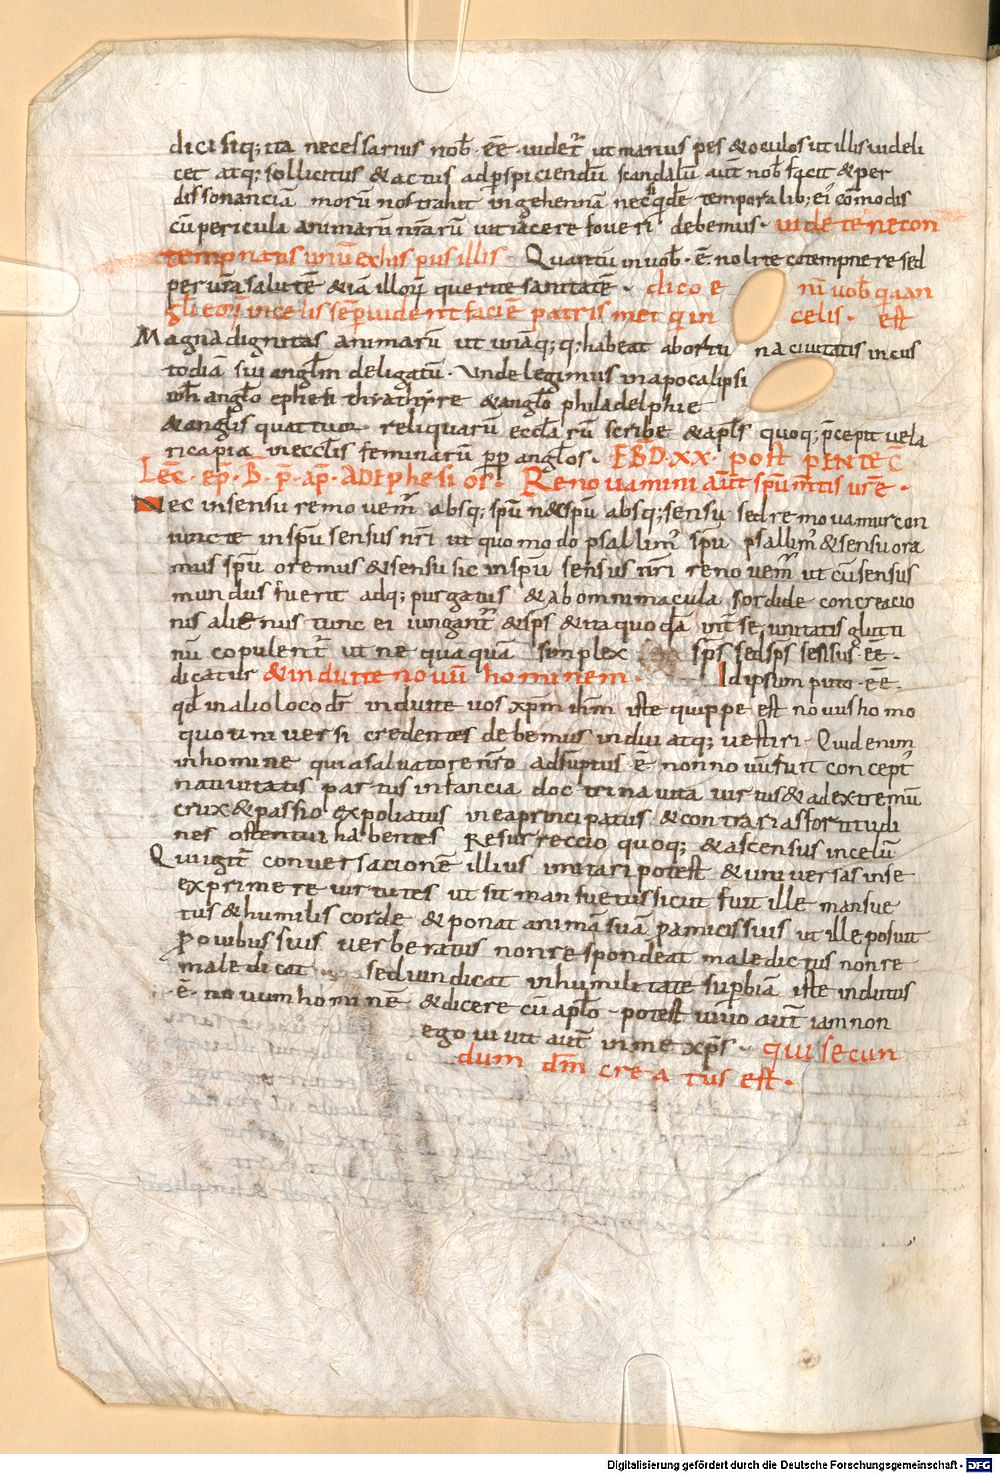 dici siq; ita necessarius nob̄ · eē · uidet̄ ut manus pes & oculos ut illis uideli
cet atq; sollicitus & actus ad p̄spiciendū scandalū aūt nob̄ facit & per
dissonanciā morū nos trahit in gehennā nec q̄dē temporalib; ei' cōmodis
cū pericula animarū nr̄arū uitiacere foueri debemus · uidete ne con
tempnatis unū ex his pusillis · Quantū in uob̄ · ē · nolite cōtempnere sed
per ur̄ā salutē & iā illoꝝ querite sanitatē · dico e nī uob̄ q̄a an
gl̄i eoꝝ in celis sēp̄ uident faciē patris mei q̄ in celis · est
Magna dignitas animarū ut unaq;q; habeat abortu na ciuitatis in cus
todiā sui angl̄m deligatū · Unde legimus in apocalipsi
angl̄o ephesi thyathyre & angl̄o philadelphie
& angl̄is quattuor reliquarū eccl̄arū scribe & apl̄s quoq; p̄cepit uela
ri capita in eccl̄is feminarū p̄p̄ angl̄os · EBD · XX · post PENTEC̄
Lec̄ · ep̄ · B · p̄ · ap̄ · AD Ephesios · Renouamini aūt sp̄u m̄tis ur̄e ·
Nec in sensu remouem̄ absq; sp̄u n& sp̄u absq; sensu sed remouamur con
iuncte in sp̄u sensus nr̄i ut quomodo psallim̄ sp̄u psallim̄ & sensu ora
mus sp̄u oremus & sensu sic in sp̄u sensus nr̄i renouem̄ ut cū sensus
mundus fuerit adq; purgatus & ab omni macula sordide concreacio
nis alienus tunc ei iungant̄ & sp̄s & ita quodā unit̄ se unitatis gluti
nū copulent̄ ut ne quaquā simplex sp̄s sed sp̄s sensus · eē ·
dicatur & induite nouū hominem · Id ipsum puto · eē ·
qd̄ in alio loco dr̄ induite uos xp̄m ih̄m iste quippe est nouus homo
quo uniuersi credentes debemus indui atq; uestiri · Quid enim
in homine qui a saluatore nr̄o adsūptus · ē · non nouū fuit concept̄
natiuitatis partus infancia doctrina uita uirtus & ad extremū
crux & passio expoliatus in ea principatus & contrarias fortitudi
nes ostentui habentes Resurreccio quoq; & ascensus in celū
Qui igit̄ conuersacionē illius imitari potest & uniuersas in se
exprimere uirtutes ut sit mansuetus sicut fuit ille mansue
tus & humilis corde & ponat animā suā p̄ amicis suis ut ille posuit
p̄ ouibus suis uerberatus non respondeat maledictus non re
maledicat sed uindicat in humilitate sup̄biā iste indutus
· ē · nouum hominē & dicere cū apl̄o · potest uiuo aūt iam non
ego uiuit aūt in me xp̄s · qui secun
dum dm̄ creatus est ·
Digitalisierung gefördert durch die Deutsche Forschungsgemeinschaft - DFG